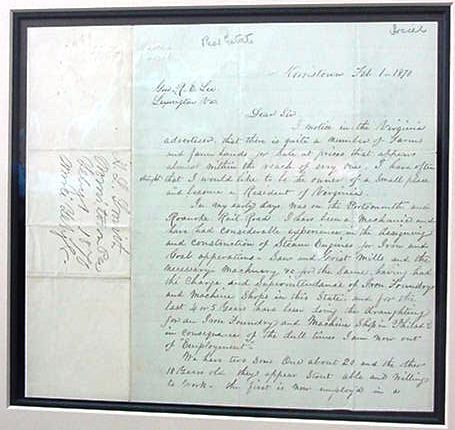 Real Estate
Norristown Feb 1 - 1870
Gen. R. E. Lee
Lexington Va
Dear Sir
I notice in the Virginia
advertiser, that there is quite a number of Farms
and farm lands for Sale at prices that appears
almost within the reach of every one. I have often
thought that I would like to be the owner of a Small place
and become a Resident of Virginia.
In my early days was on the Portsmouth and
Roanoke Rail Road I have been a Mechanic and
have had considerable experience in the designing
and construction of Steam Engines for Iron and
Coal operations - Saw and Grist Mills and the
necessary Machinery &c for the Same, having had
the Charge and Superintendance of Iron Foundrys
and Machine Shops in this State. and for the
last 4 or 5 Years have been doing the draughting
for an Iron Foundry and Machine Shop in Philad.
in consequence of the dull times I am now out
of Employment.
We have two Sons One about 20 and the other
18 Years old they appear Stout able and willing
to work - the first is now employed in a
Norristown Pa
Feby 1 1870